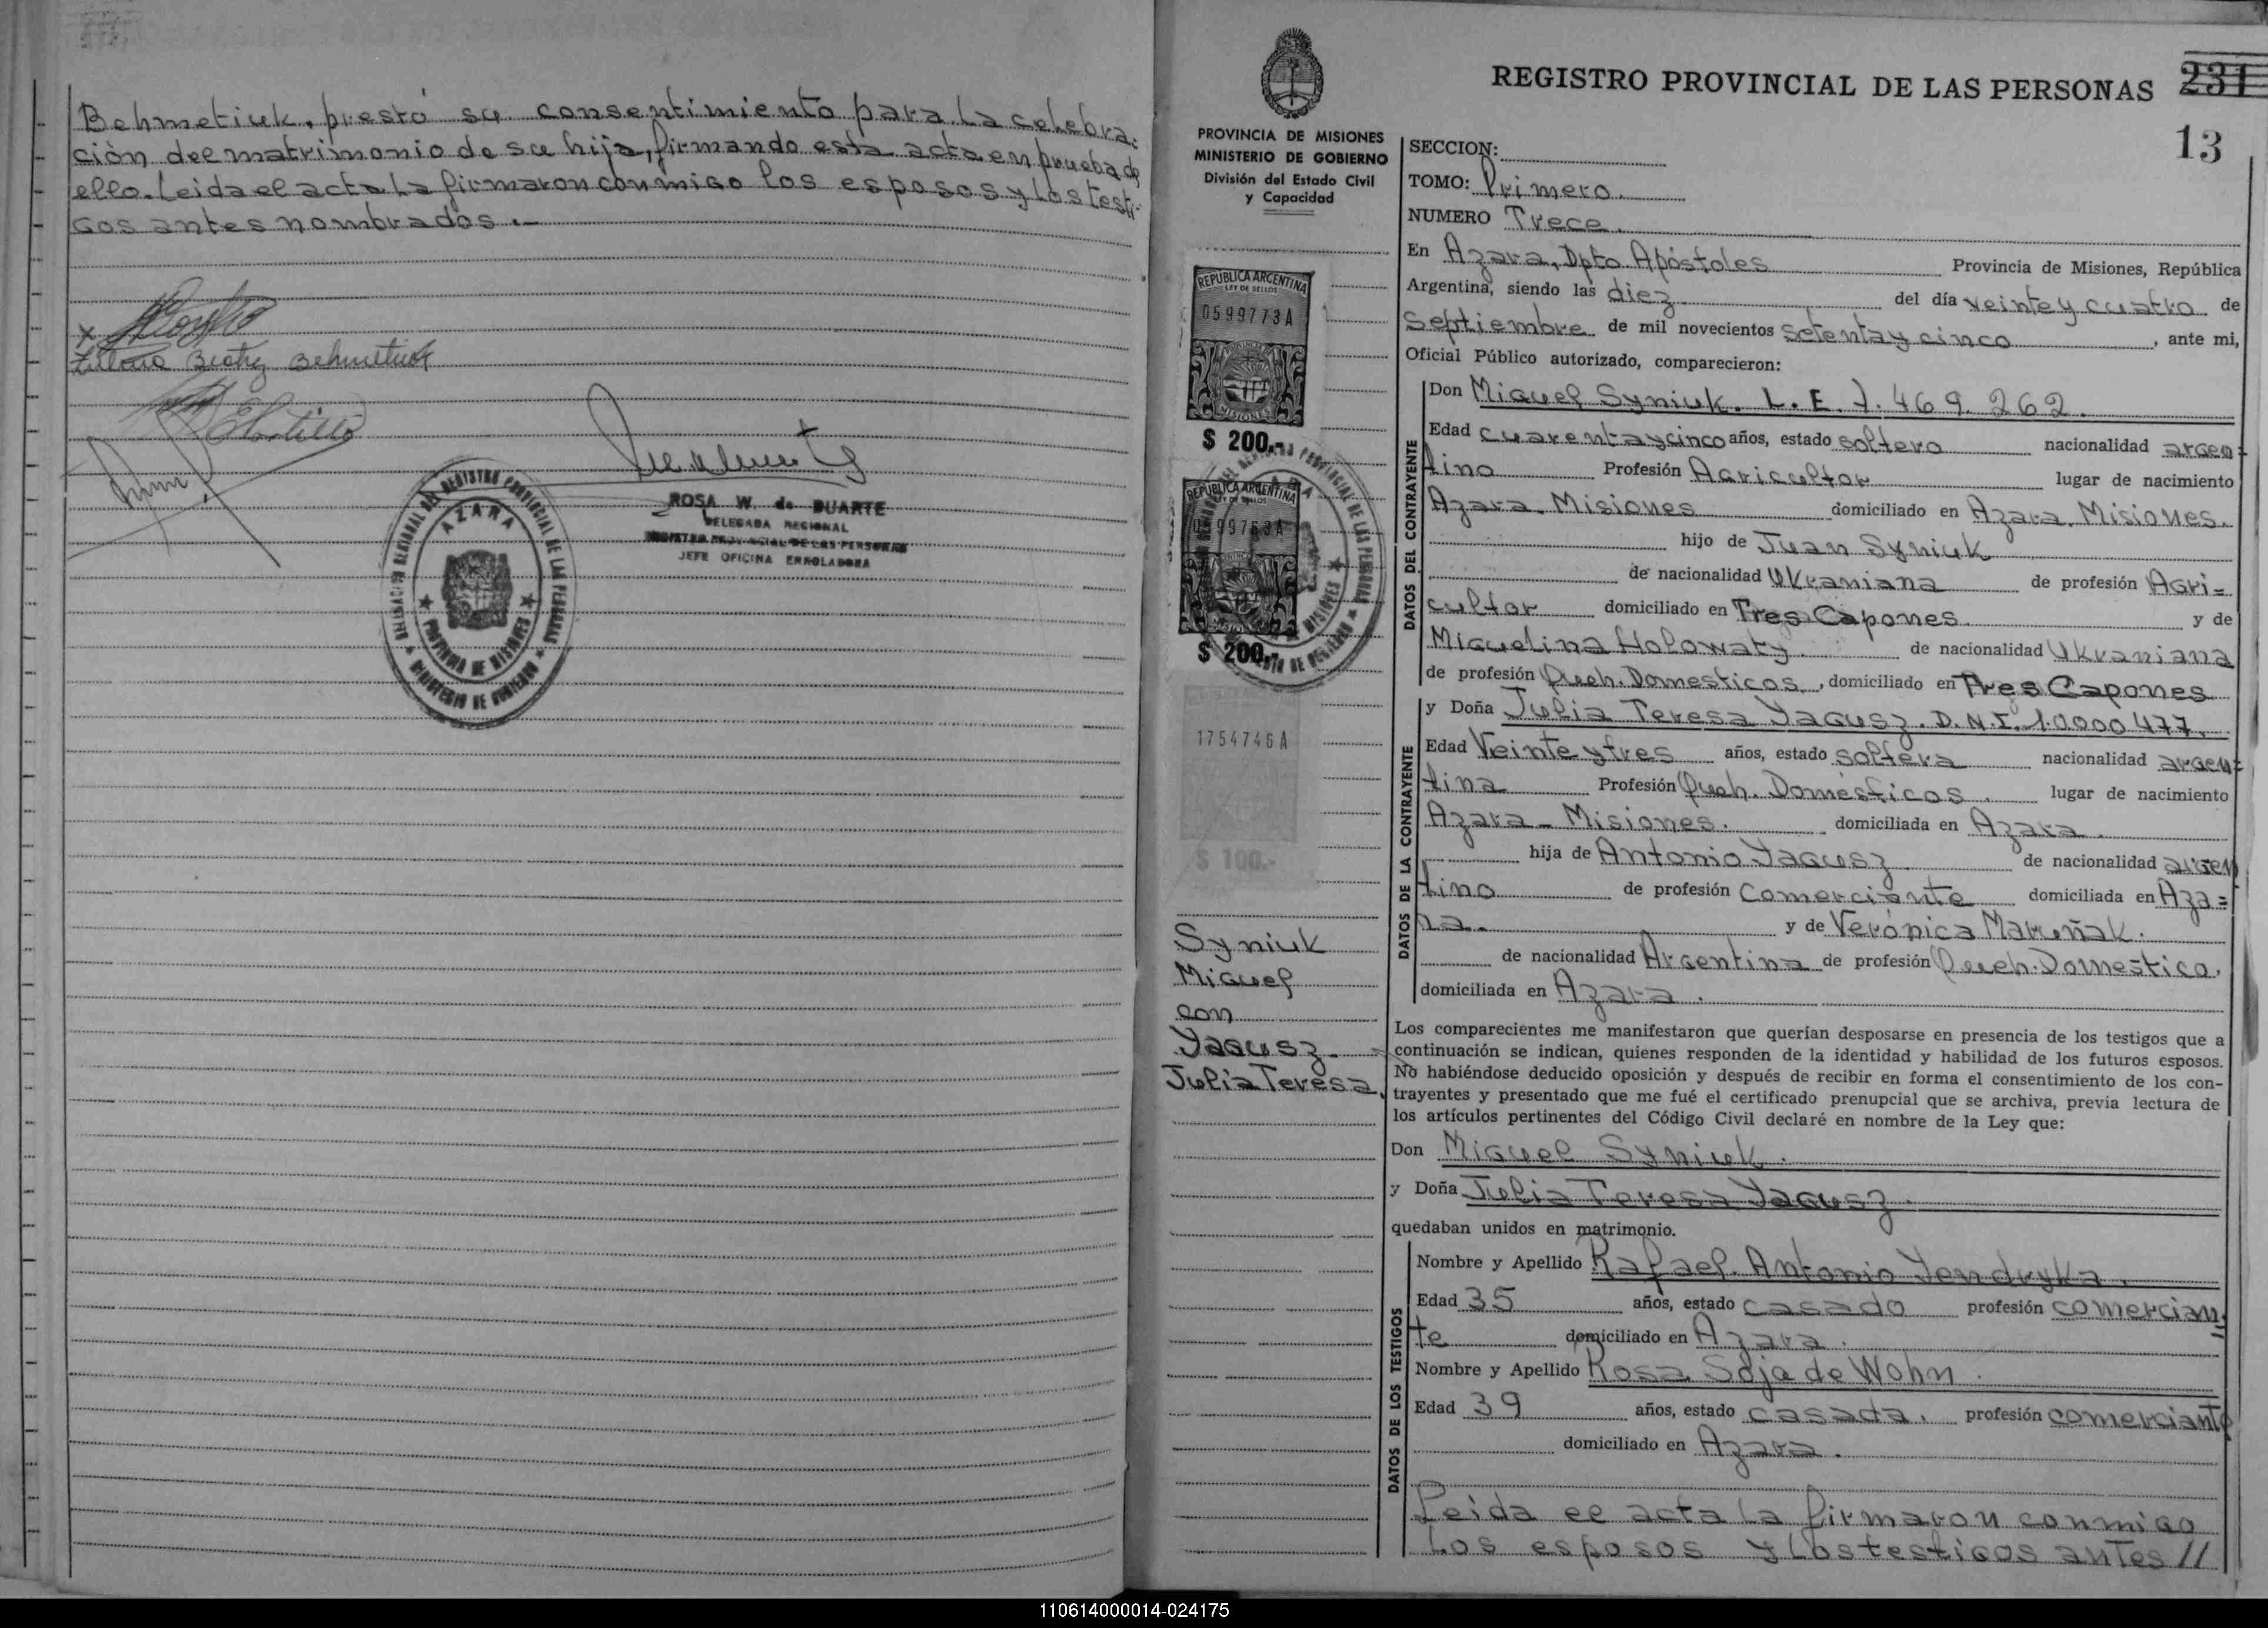 Behmetiuk, prestó su consentimiento para la celebra-
ción del matrimonio de su hija, firmando esta acta en prueba de
ello. Leida el acta la firmaron conmigo los esposos y los testi-
gos antes nombrados.-
Behmetiuk
ROSA W. de DUARTE
DELEGADA REGIONAL
REGISTRO PROVINCIAL DE LAS PERSONAS
JEFE OFICINA ENROLADORA
DELEGACIO REGIONAL DEL REGISTRO PROVINCIAL DE LAS PERSONAS
AZARA
PROVINCIA DE MISIONES
MINISTERIO DE GOBIERNO
REGISTRO PROVINCIAL DE LAS PERSONAS 231
13
PROVINCIA DE MISIONES
MINISTERIO DE GOBIERNO
División del Estado Civil
y Capacidad
REPUBLICA ARGENTINA
LEY DE SELLOS
0599773A
MISIONES
$ 200.-
REPUBLICA ARGENTINA
LEY DE SELLOS
$ 200.-
1754746A
$ 100.-
Syniuk
Miguel
con
Yagusz
Julia Teresa
SECCION:
TOMO: Primero.
NUMERO Trece.
En Azara, Dpto Apóstoles Provincia de Misiones, República
Argentina, siendo las diez del día veinte y cuatro de
Septiembre de mil novecientos setenta y cinco, ante mi,
Oficial Público autorizado, comparecieron:
DATOS DEL CONTRAYENTE
Don Miguel Syniuk. L.E. 7.469.262.
Edad cuarenta y cinco años, estado soltero nacionalidad argen-
tino Profesión Agricultor lugar de nacimiento
Azara. Misiones domiciliado en Azara. Misiones.
hijo de Juan Syniuk
de nacionalidad Ukraniana de profesión Agri=
cultor domiciliado en Tres Capones y de
Miguelina Holowaty. de nacionalidad Ukraniana
de profesión Queh. Domesticos, domiciliado en Tres Capones
DATOS DE LA CONTRAYENTE
y Doña Julia Teresa Yagusz. D.N.I. 10.000477.
Edad Veinte y tres años, estado soltera nacionalidad argen=
tina Profesión Queh. Domésticos. lugar de nacimiento
Azara - Misiones. domiciliada en Azara.
hija de Antonio Yagusz de nacionalidad argen
tino de profesión Comerciante domiciliada en Aza=
ra. y de Verónica Maruñak.
de nacionalidad Argentina de profesión Queh. Domestica.
domiciliada en Azara.
Los comparecientes me manifestaron que querían desposarse en presencia de los testigos que a
continuación se indican, quienes responden de la identidad y habilidad de los futuros esposos.
No habiéndose deducido oposición y después de recibir en forma el consentimiento de los con-
trayentes y presentado que me fué el certificado prenupcial que se archiva, previa lectura de
los artículos pertinentes del Código Civil declaré en nombre de la Ley que:
Don Miguel Syniuk.
y Doña Julia Teresa Yagusz.
quedaban unidos en matrimonio.
DATOS DE LOS TESTIGOS
Nombre y Apellido Rafael Antonio Yendryka.
Edad 35 años, estado casado profesión comercian
te domiciliado en Azara.
Nombre y Apellido Rosa Soja de Wohn.
Edad 39 años, estado casada. profesión comerciante
domiciliado en Azara.
Leida el acta la firmaron conmigo
los esposos y los testigos antes //
110614000014-024175